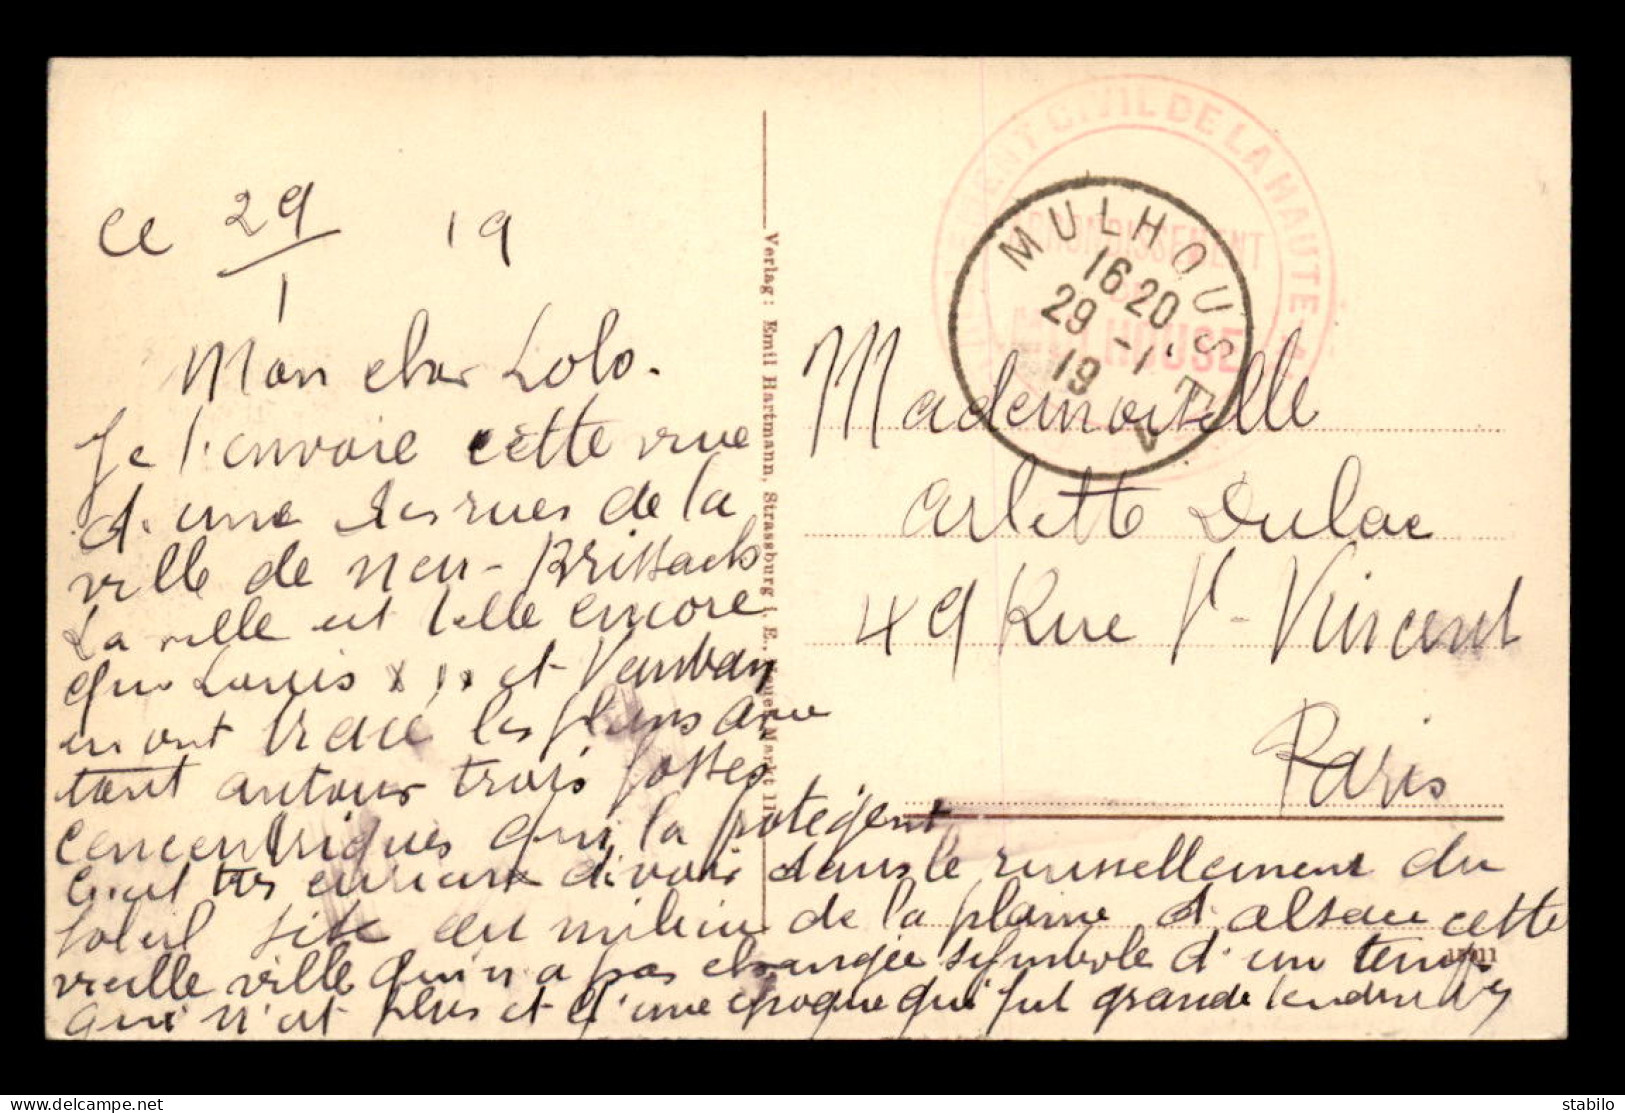 Ce 29/1 19
Mon cher Lolo.
Je t'envoie cette vue
d'une des rues de la
ville de neu-Brissach
La ville est telle encore
que Louis XIV et Vauban
en ont tracé les plans avec
tout autour trois fossés
concentriques qui la protègent
C'est très curieux de voir dans le ruissellement du
soleil sise au milieu de la plaine d'alsace cette
vieille ville qui n'a pas changée symbole d'un temps
qui n'est plus et d'une époque qui fut grande
Verlag: Emil Hartmann, Strassburg i. E., Neuer Markt
CIVIL DE LA HAUTE
ARRONDISSEMENT
MULHOUSE
MULHOUSE
16 20
29 - 1.
19
Mademoiselle
Arlette Dulac
49 Rue St-Vincent
Paris
stabilo